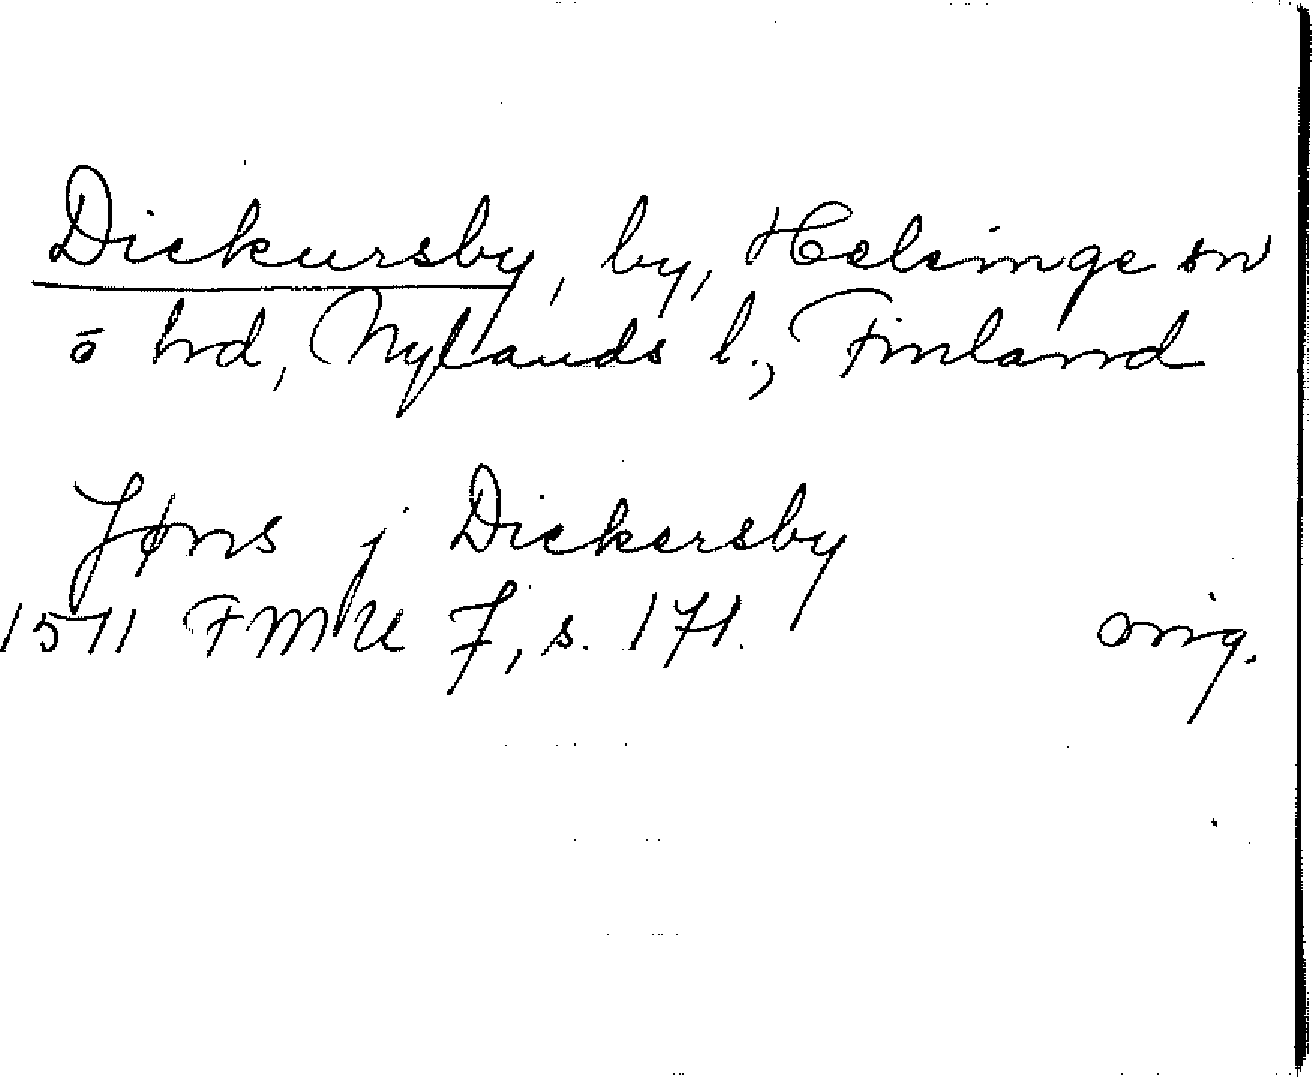 Dickursby, by, Helsinge sn
o hrd, Nylands l., Finland
Jøns j Dickersby
1571 FMU 7, s. 171. orig.